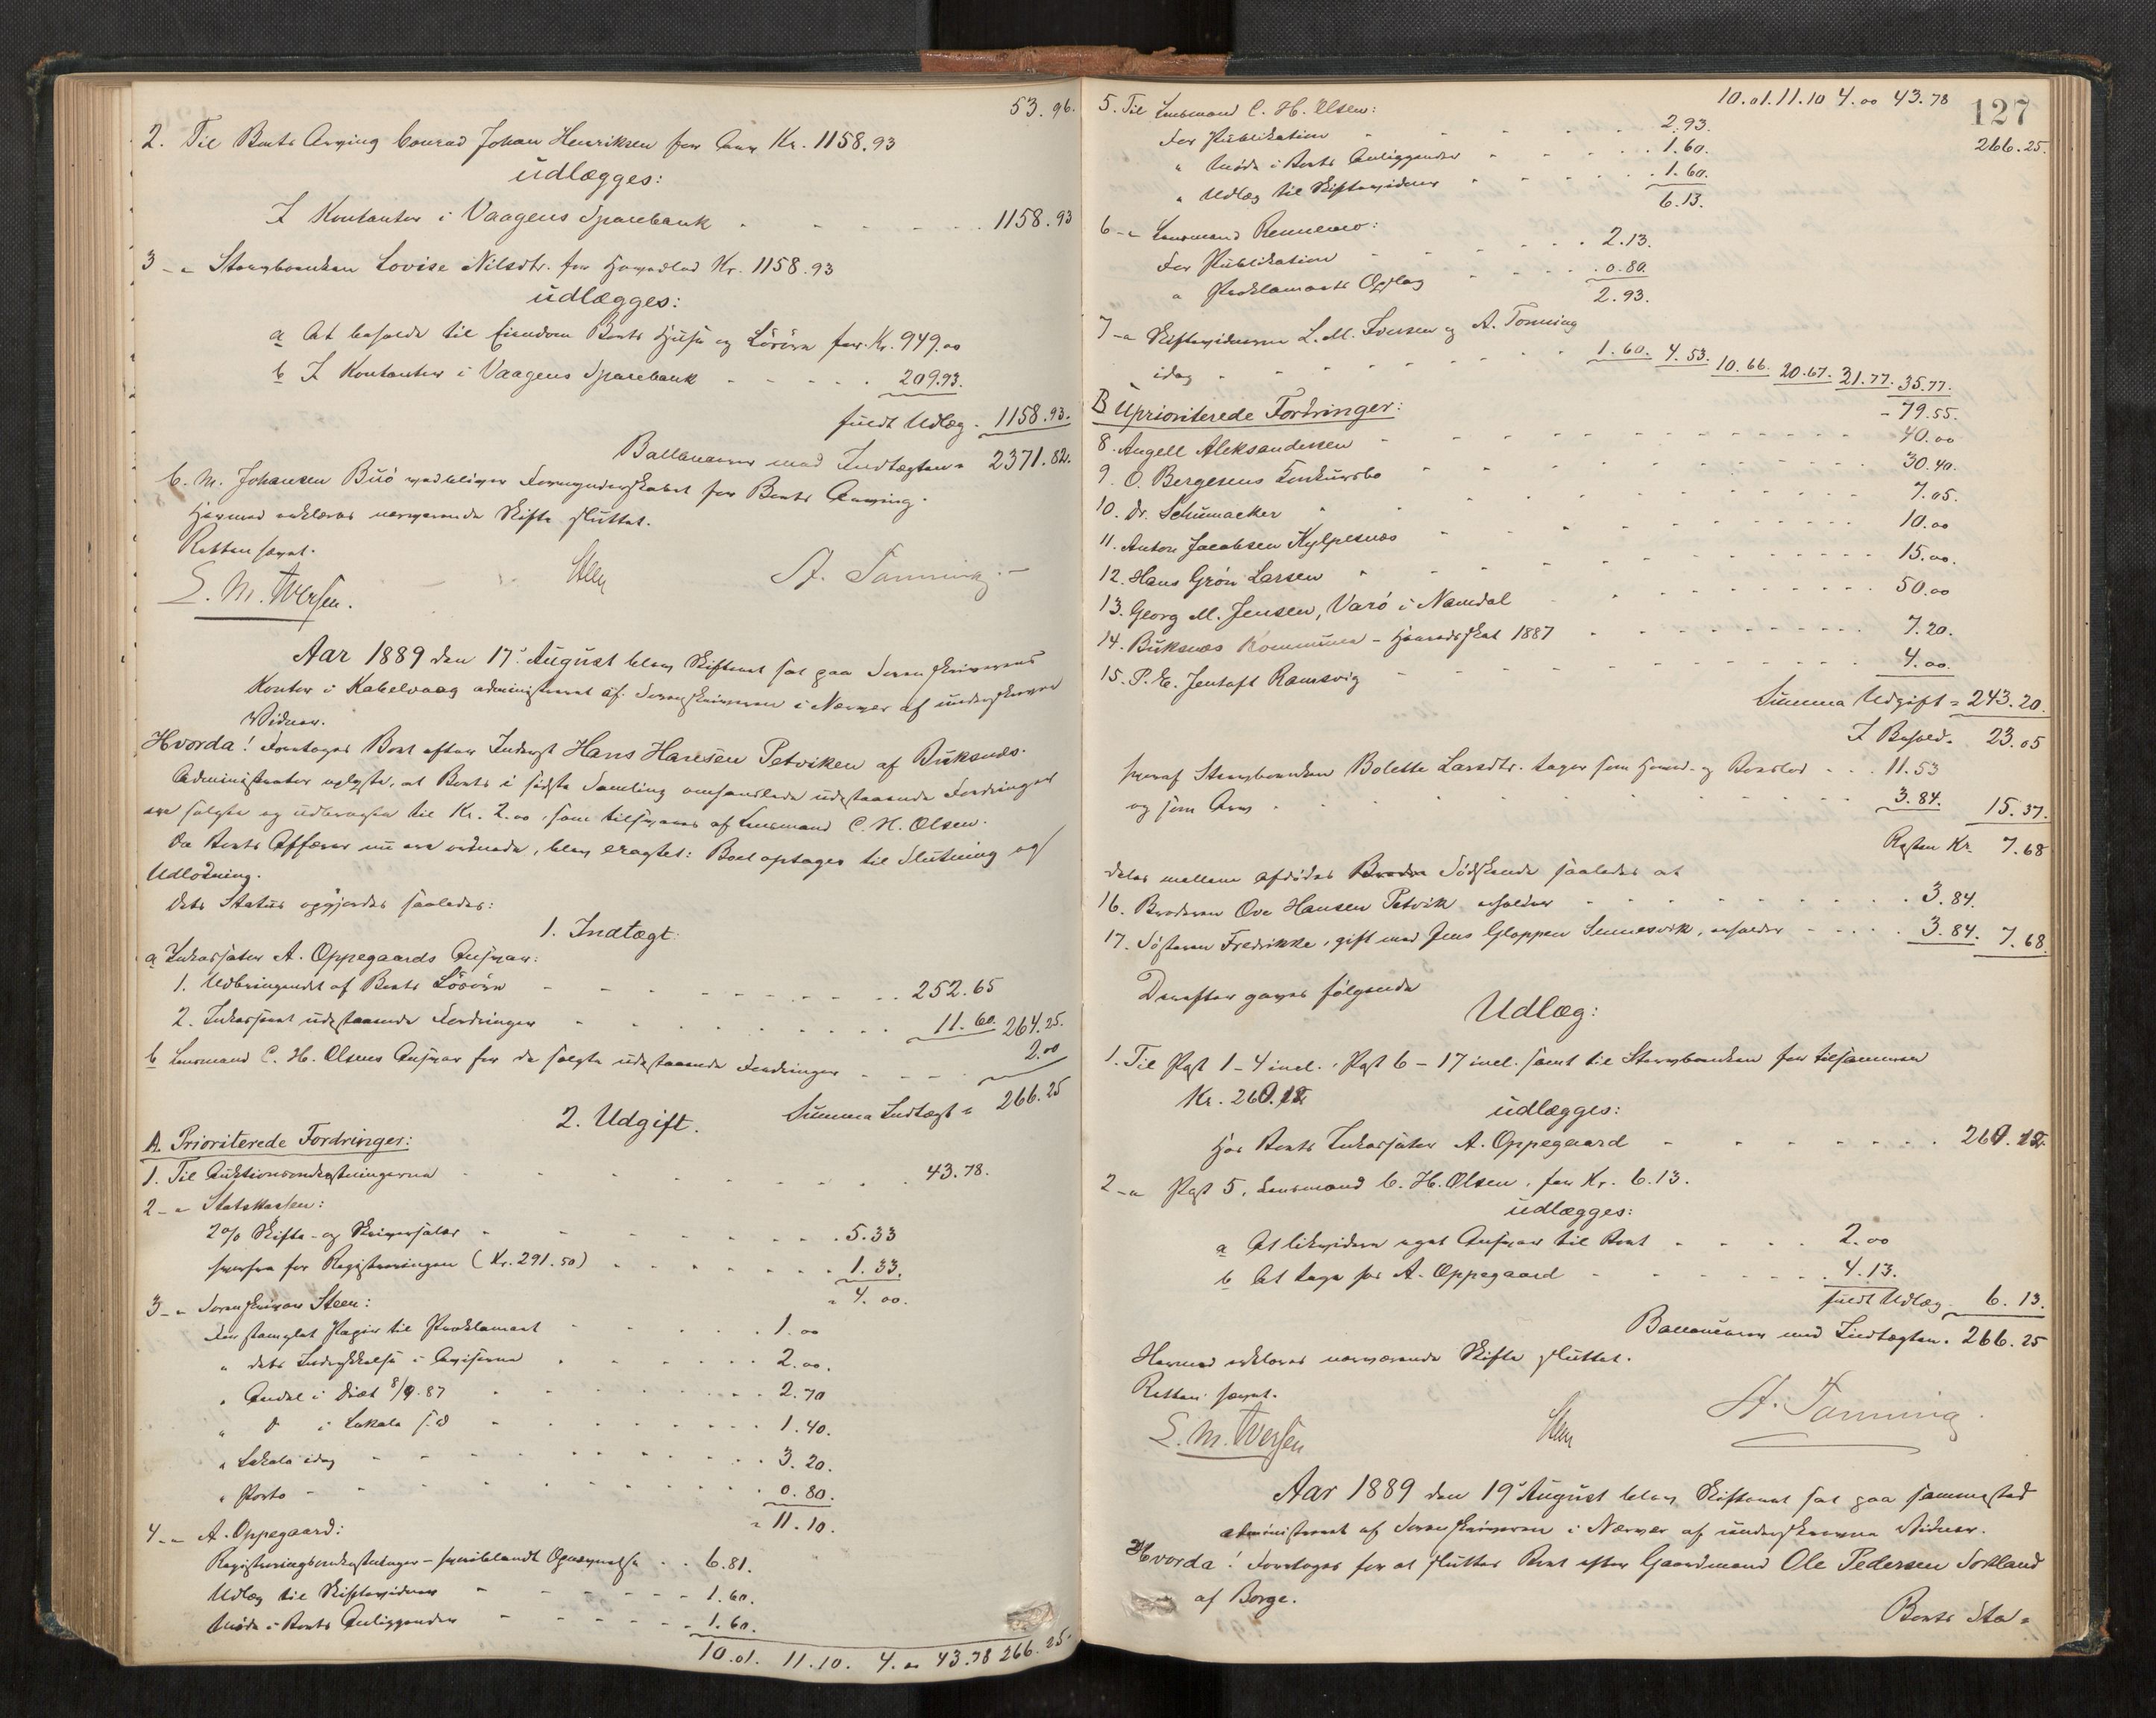 53.96.
2. Til Boets Arving Conrad Johan Henriksen for Arv Kr. 1158.93
udlægges:
I Kontanter i Vaagens Sparebank - - - - - 1158.93
3 - " Stervboenken Lovise Nilsdtr. for Hovedlod Kr. 1158.93
udlægges:
a At beholde til Eiendom Boets Huse og Løsøre for Kr. 949.00
b I Kontanter i Vaagens Sparebank - - - - - 209.93.
fuldt Udlæg - 1158.93.
Ballancerer med Indtægten = 2371.82.
C. M. Johansen Buø vedbliver Formynderskabet for Boets Arving.
Hermed erklæres nærværende Skifte sluttet.
Retten hævet.
L. M. Iversen. Steen A. Tønning.
Aar 1889 den 17' August blev Skifteret sat paa Sorenskriverens
Kontor i Kabelvaag administreret af Sorenskriveren i Nærvær af underskrevne
Vidner.
Hvorda! Foretoges Boet efter Inderst Hans Hansen Petviken af Buksnes.
Administrator oplyste, at Boets i sidste Samling omhandlede udestaaende Fordringer
ere solgte og udbragte til Kr. 2.00, som tilsvares af Lensmand C. H. Olsen.
Da Boets Affærer nu ere ordnede, blev eragtet: Boet optages til Slutning og
Udlodning.
Dets Status opgjordes saaledes:
1. Indtægt:
a Inkassator A. Oppegaards Ansvar:
1. Udbringendet af Boets Løsøre - - - - - 252.65
2. Inkasseret udestaaende Fordringer - - - - - 11.60. 264.25.
b Lensmand C. H. Olsens Ansvar for de solgte udestaaende Fordringer - - - - 2.00
Summa Indtægt = 266.25
2. Udgift.
A. Prioriterede Fordringer:
1. Til Auktionsomkostningerne - - - - - 43.78.
2 - " Statskassen:
2% Skifte- og Skriversalær - - - - - 5.33
herfra for Registreringen (Kr. 291.50) - - - - - 1.33.
" 4.00.
3 - " Sorenskriver Steen:
For stemplet Papir til Proklamaet - - - - - 1.00
" dets Indrykkelse i Aviserne - - - - - 2.00.
" Andel i Diæt 8/9.87 - - - - - 2.70
" Do i Lokale s.D. - - - - - 1.40.
" Lokale idag - - - - - 3.20.
" Porto - - - - - 0.80.
" 11.10.
4 - " A. Oppegaard:
Registreringsomkostninger - heriblandt Opasynelse - - 6.81.
Udlæg til Skiftevidner - - - - - 1.60.
Møde i Boets Anliggender - - - - - 1.60.
10.01. 11.10. 4.00 43.78 266.25.
10.01. 11.10 4.00 43.78
127
266.25.
5. Til Lensmand C. H. Olsen:
For Publikation - - - - - 2.93.
" Møde i Boets Anliggender - - - - - 1.60.
" Udlæg til Skiftevidner - - - - - 1.60.
6.13.
6 - " Lensmand Rennemo:
For Publikation - - - - - 2.13.
" Proklamaets Opslag - - - - - 0.80.
2.93.
7 - " Skiftevidnerne L. M. Iversen og A. Tønning
idag - - - - - 1.60. 4.53. 10.66. 20.67. 21.77. 35.77.
- 79.55.
B Uprioriterede Fordringer:
8. Angell Aleksandersen - - - - - 40.00
9. O. Bergesens Konkursbo - - - - - 30.40.
10. Dr. Schumacker - - - - - 7.05.
11. Anton Jacobsen Kylpesnæs - - - - - 10.00
12. Hans Grøn Larsen - - - - - 15.00.
13. Georg M. Jensen, Varø i Namdal - - - - - 50.00
14. Buksnæs Kommune - Herredsskat 1887 - - - - - 7.20.
15. P. E. Jentoft Ramsvig - - - - - 4.00.
Summa Udgift = 243.20.
I Behold. 23.05
hvoraf Stervboenken Bolette Larsdtr. tager som Hoved- og Boeslod - - - 11.53
og som Arv - - - - - 3.84. 15.37.
Resten Kr. 7.68
deles mellem Afdødes Brodre Sødskende saaledes at
16. Broderen Ove Hansen Petvik erholder - - - - - 3.84.
17. Søsteren Fredrikke, gift med Jens Gloppen Sennesvik, erholder - - - - 3.84. 7.68.
Derefter gaves følgende
Udlæg:
1. Til Post 1 - 4 incl., Post 6 - 17 incl. samt til Stervboenken for tilsammen
Kr. 260.12
udlægges:
Hos Boets Inkassator A. Oppegaard - - - - - 260.12.
2 - " Post 5, Lensmand C. H. Olsen, for Kr. 6.13.
udlægges:
a At likvidere eget Ansvar til Boet - - - - 2.00
b At tage hos A. Oppegaard - - - - - 4.13.
fuldt Udlæg - 6.13.
Ballancerer med Indtægten. 266.25
Hermed erklæres nærværende Skifte sluttet.
Retten hævet.
L. M. Iversen Steen A. Tønning.
Aar 1889 den 19' August blev Skifteret sat paa sammested
administreret af Sorenskriveren i Nærvær af underskrevne Vidner.
Hvorda! Foretoges for at sluttes Boet efter Gaardmand Ole Pedersen Sortland
af Borge.
Boets Sta=